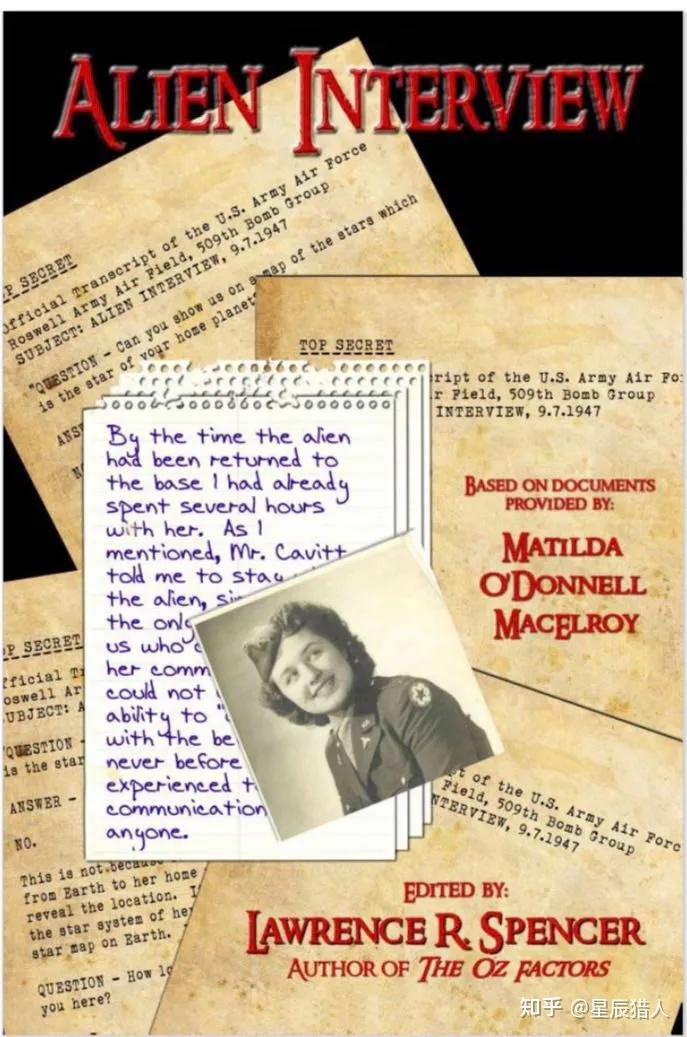 ALIEN INTERVIEW
TOP SECRET
Official Transcript of the U.S. Army Air Force
Roswell Army Air Field, 509th Bomb Group
SUBJECT: ALIEN INTERVIEW, 9.7.1947
"QUESTION - Can you show us on a map of the stars which
is the star of your home planet
TOP SECRET
cript of the U.S. Army Air Fo
r Field, 509th Bomb Group
INTERVIEW, 9.7.1947
By the time the alien
had been returned to
the base I had already
spent several hours
with her. As I
mentioned, Mr. Cavitt
told me to stay
the alien,
the only
us who
her comm
could not
ability to
with the be
never before
experienced t
communication
anyone.
BASED ON DOCUMENTS
PROVIDED BY:
MATILDA
O'DONNELL
MACELROY
P SECRET
fficial Tr
oswell Ar
UBJECT: A
QUESTION -
is the star
ANSWER -
NO.
This is not because
from Earth to her home
reveal the location. I
the star system of her
star map on Earth.
QUESTION - How lo
you here?
pt of the U.S. Army Air Forc
Field, 509th Bomb Group
NTERVIEW, 9.7.1947
EDITED BY:
LAWRENCE R. SPENCER
AUTHOR OF THE OZ FACTORS
知乎 @星辰猎人